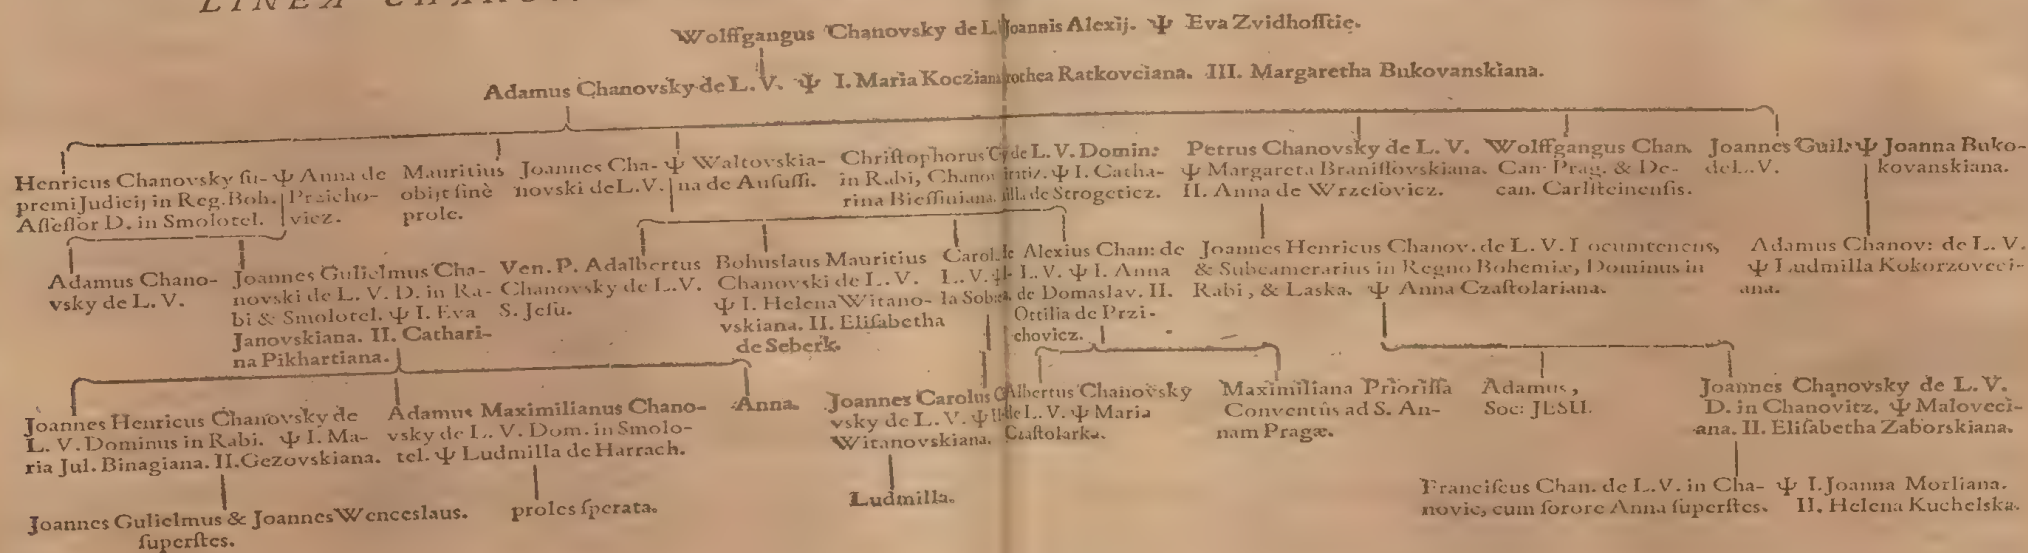 LINEA
Wolffgangus Chanovsky de L. Joannis Alexij. Ψ Eva Zvidhoſſtię.
Adamus Chanovsky de L. V. Ψ I. Maria Koczian rothea Ratkovciana. III. Margaretha Bukovanskiana.
Henricus Chanovsky ſu-
premi Judicij in Reg. Boh.
Aſſeſſor D. in Smolotel.
Ψ Anna de
Przicho-
vicz.
Mauritius
obijt ſinè
prole.
Joannes Cha-
novski de L. V.
Ψ Waltovskia-
na de Auſuſſi.
Chriſtophorus C y de L. V. Domin:
in Rabi, Chanov Ψ I. Catha-
rina Bieſſiniana. de Strogeticz.
Petrus Chanovsky de L. V.
Ψ Margareta Braniſſovskiana.
II. Anna de Wrzeſovicz.
Wolffgangus Chan.
Can. Prag. & De-
can. Carlſteinenſis.
Joannes Guil:
de L. V.
Ψ Joanna Buko-
kovanskiana.
Adamus Chano-
vsky de L. V.
Joannes Gulielmus Cha-
novski de L. V. D. in Ra-
bi & Smolotel. Ψ I. Eva
Janovskiana. II. Cathari-
na Pikhartiana.
Ven. P. Adalbertus
Chanovsky de L. V.
S. Jeſu.
Bohuslaus Mauritius
Chanovski de L. V.
Ψ I. Helena Witano-
vskiana. II. Eliſabetha
de Seberk.
Carol
L. V. Ψ
la Sob
Alexius Chan: de
L. V. Ψ I. Anna
de Domaslav. II.
Ottilia de Przi-
chovicz.
Joannes Henricus Chanov. de L. V. Locumtenens,
& Subcamerarius in Regno Bohemiæ, Dominus in
Rabi, & Laska. Ψ Anna Czaſtolariana.
Adamus Chanov: de L. V.
Ψ Ludmilla Kokorzoveci-
ana.
Joannes Henricus Chanovsky de
L. V. Dominus in Rabi. Ψ I. Ma-
ria Jul. Binagiana. II. Gezovskiana.
Adamus Maximilianus Chano-
vsky de L. V. Dom. in Smolo-
tel. Ψ Ludmilla de Harrach.
Anna.
Joannes Carolus
vsky de L. V. Ψ
Witanovskiana.
Albertus Chanovsky
de L. V. Ψ Maria
Czaſtolarka.
Maximiliana Prioriſſa
Conventûs ad S. An-
nam Pragæ.
Adamus,
Soc: JESU.
Joannes Chanovsky de L. V.
D. in Chanovitz. Ψ Maloveci-
ana. II. Eliſabetha Zaborskiana.
Joannes Gulielmus & Joannes Wenceslaus.
ſuperſtes.
proles ſperata.
Ludmilla.
Franciſcus Chan. de L. V. in Cha-
novic, cum ſorore Anna ſuperſtes.
Ψ I. Joanna Morliana.
II. Helena Kuchelska.